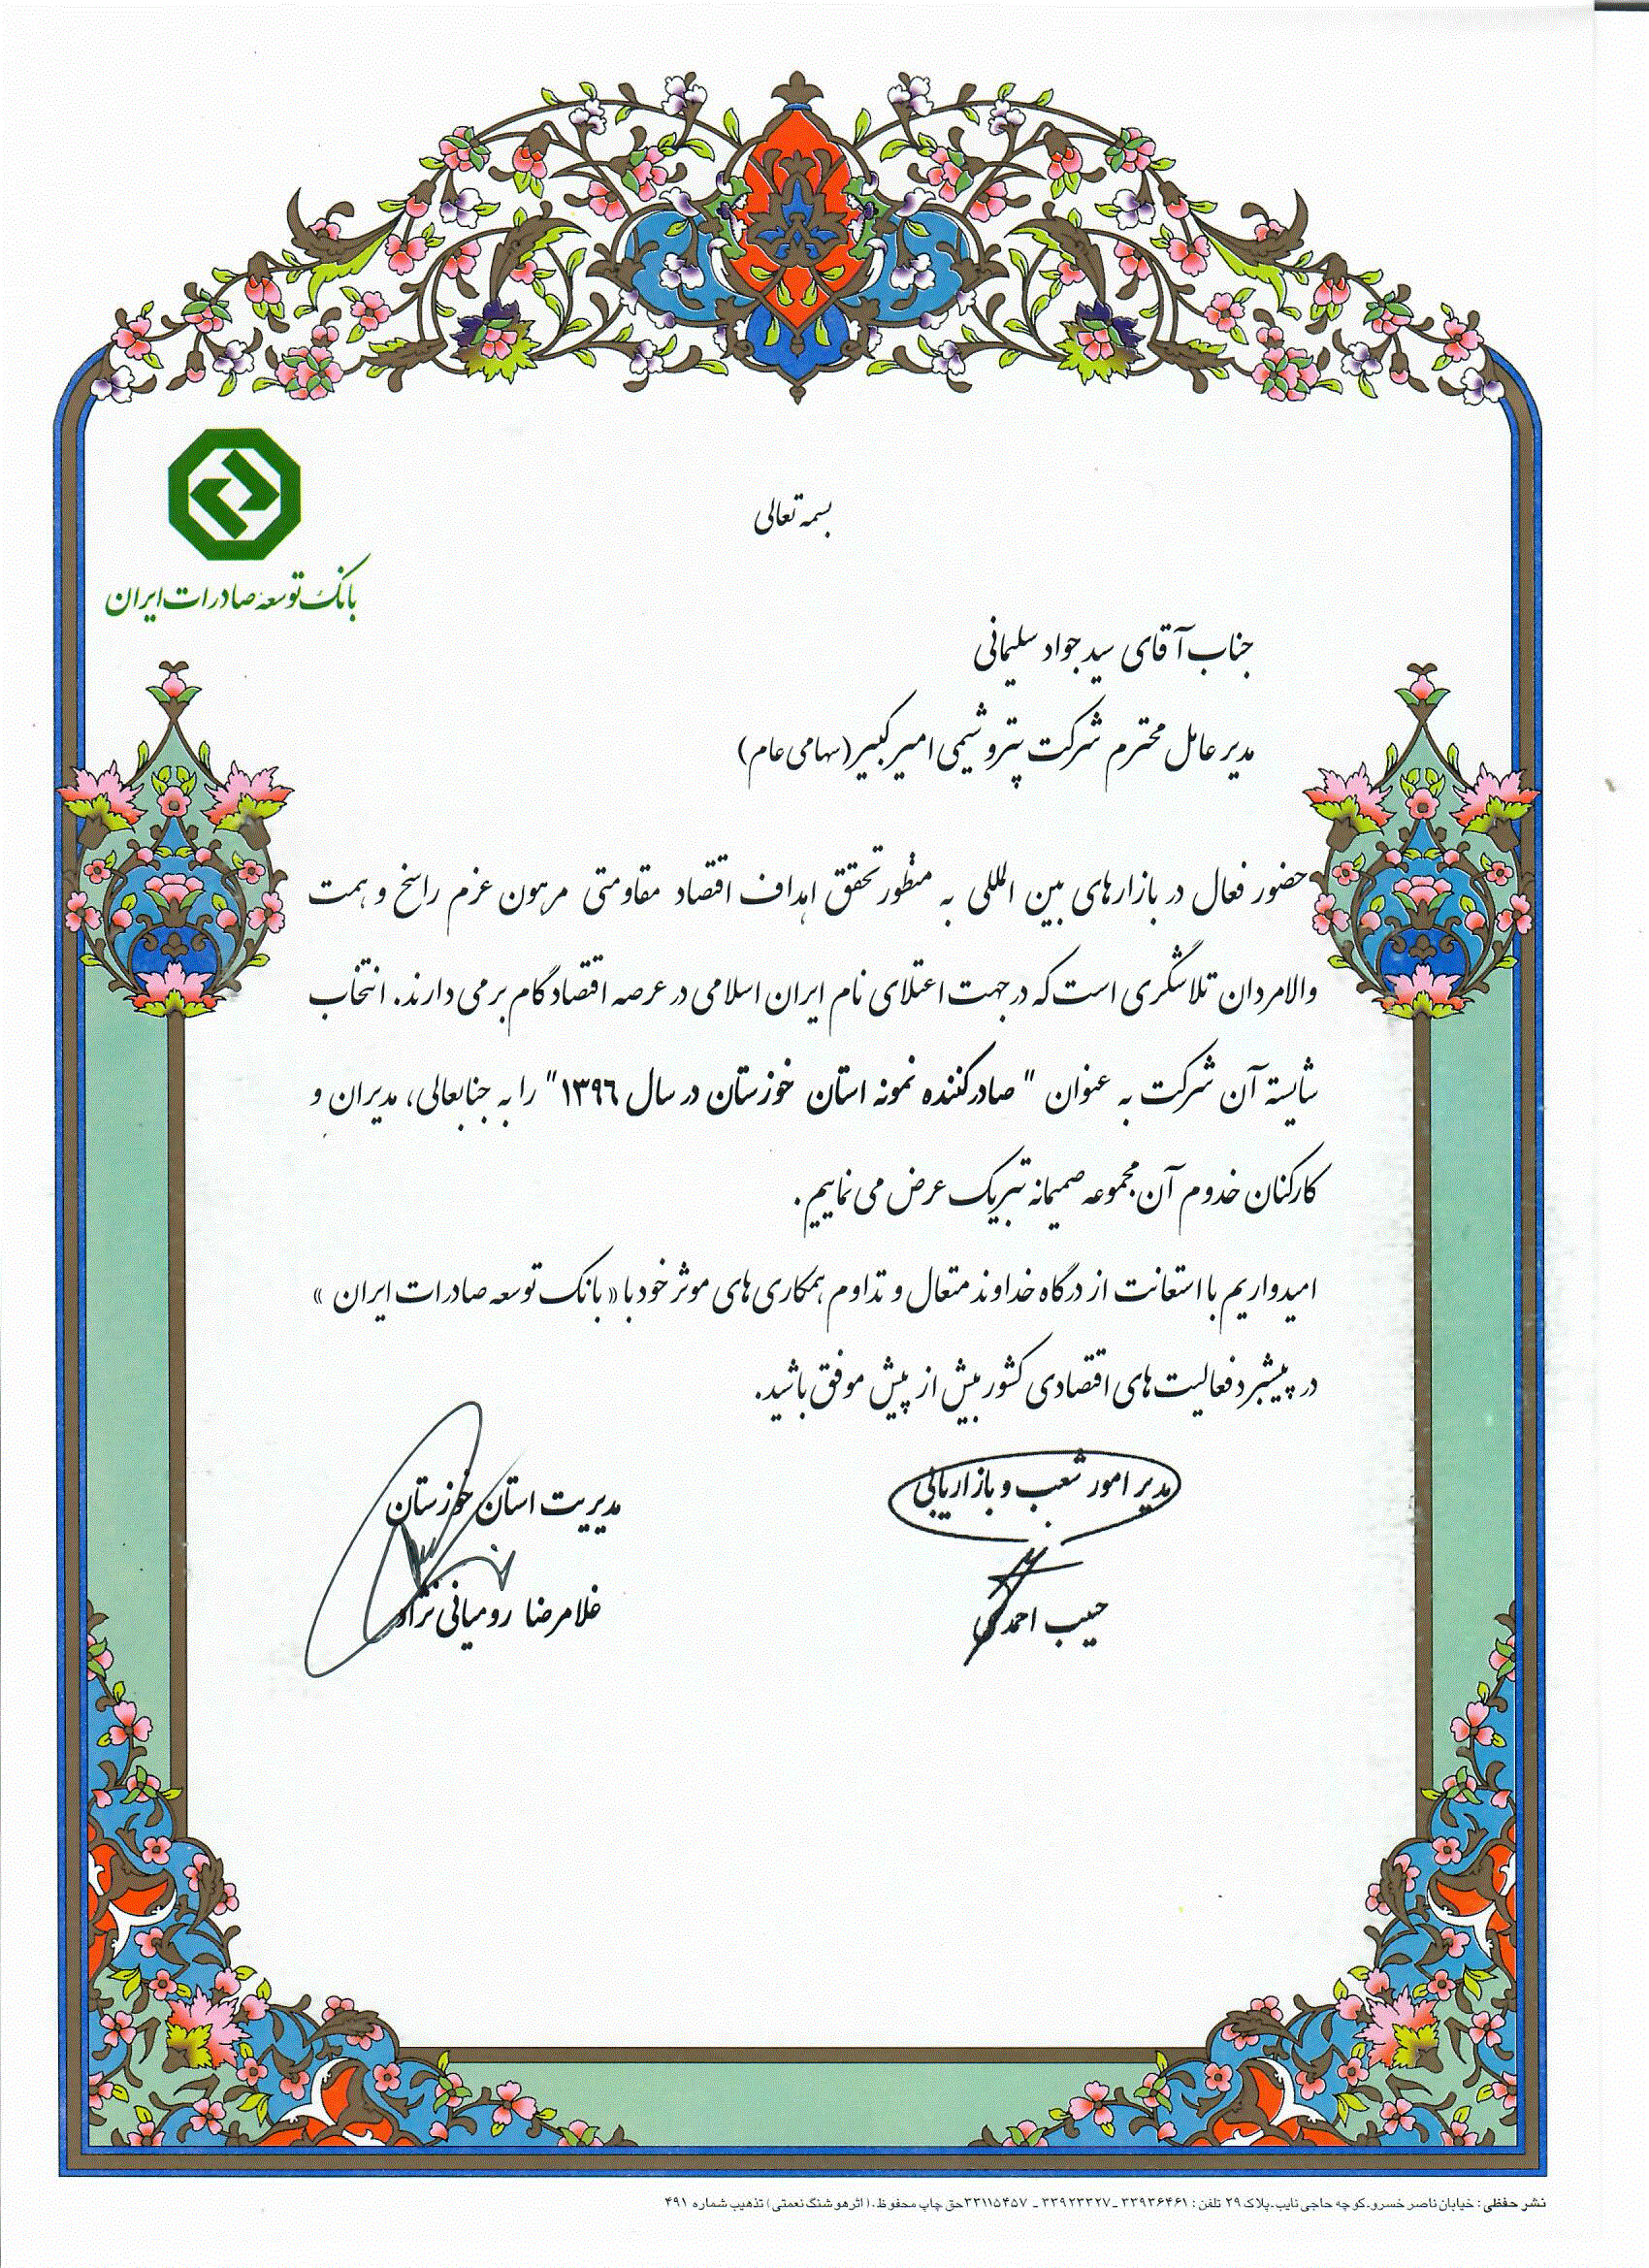 بسمه تعالی
بانک توسعه صادرات ایران
جناب آقای سید جواد سلیمانی
مدیر عامل محترم شرکت پتروشیمی امیر کبیر (سهامی عام)
حضور فعال در بازارهای بین المللی به منظور تحقق اهداف اقتصاد مقاومتی مرهون عزم راسخ و همت
والامردان تلاشگری است که در جهت اعتلای نام ایران اسلامی در عرصه اقتصاد گام برمی دارند. انتخاب
شایسته آن شرکت به عنوان " صادرکننده نمونه استان خوزستان در سال ۱۳۹۶" را به جنابعالی، مدیران و
کارکنان خدوم آن مجموعه صمیمانه تبریک عرض می نماییم.
امیدواریم با استعانت از درگاه خداوند متعال و تداوم همکاری های موثر خود با « بانک توسعه صادرات ایران »
در پیشبرد فعالیت های اقتصادی کشور بیش از پیش موفق باشید.
مدیر امور شعب و بازاریابی
حبیب احمدی
مدیریت استان خوزستان
غلامرضا رومیانی نژاد
نشر حفظی : خیابان ناصر خسرو.کوچه حاجی نایب.پلاک ۲۹ تلفن : ۳۳۹۳۶۴۶۱ ـ ۳۳۹۲۳۳۲۷ ـ ۳۳۱۱۵۴۵۷حق چاپ محفوظ.( اثر هوشنگ نعمتی ) تذهیب شماره ۴۹۱